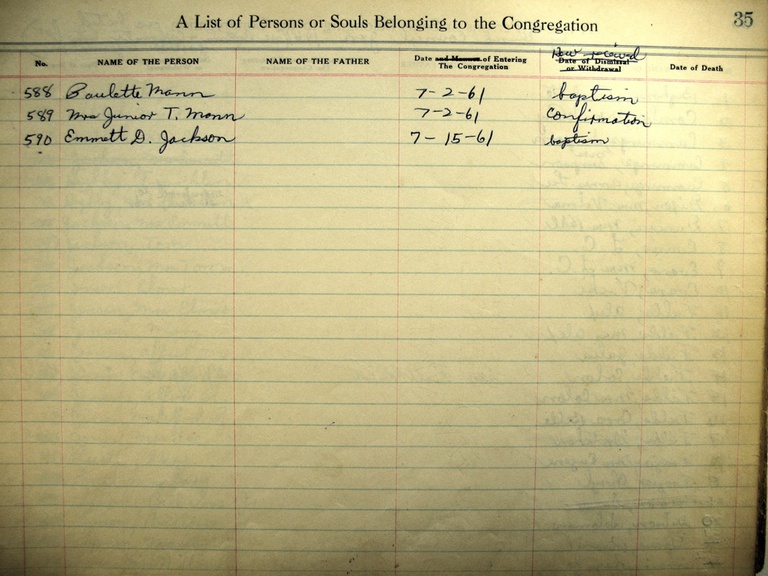 A List of Persons or Souls Belonging to the Congregation 35
No. NAME OF THE PERSON NAME OF THE FATHER Date and Manner of Entering The Congregation How received Date of Dismissal or Withdrawal Date of Death
588 Paulette Mann 7-2-61 baptism
589 Mrs Junior T. Mann 7-2-61 Confirmation
590 Emmett D. Jackson 7-15-61 baptism